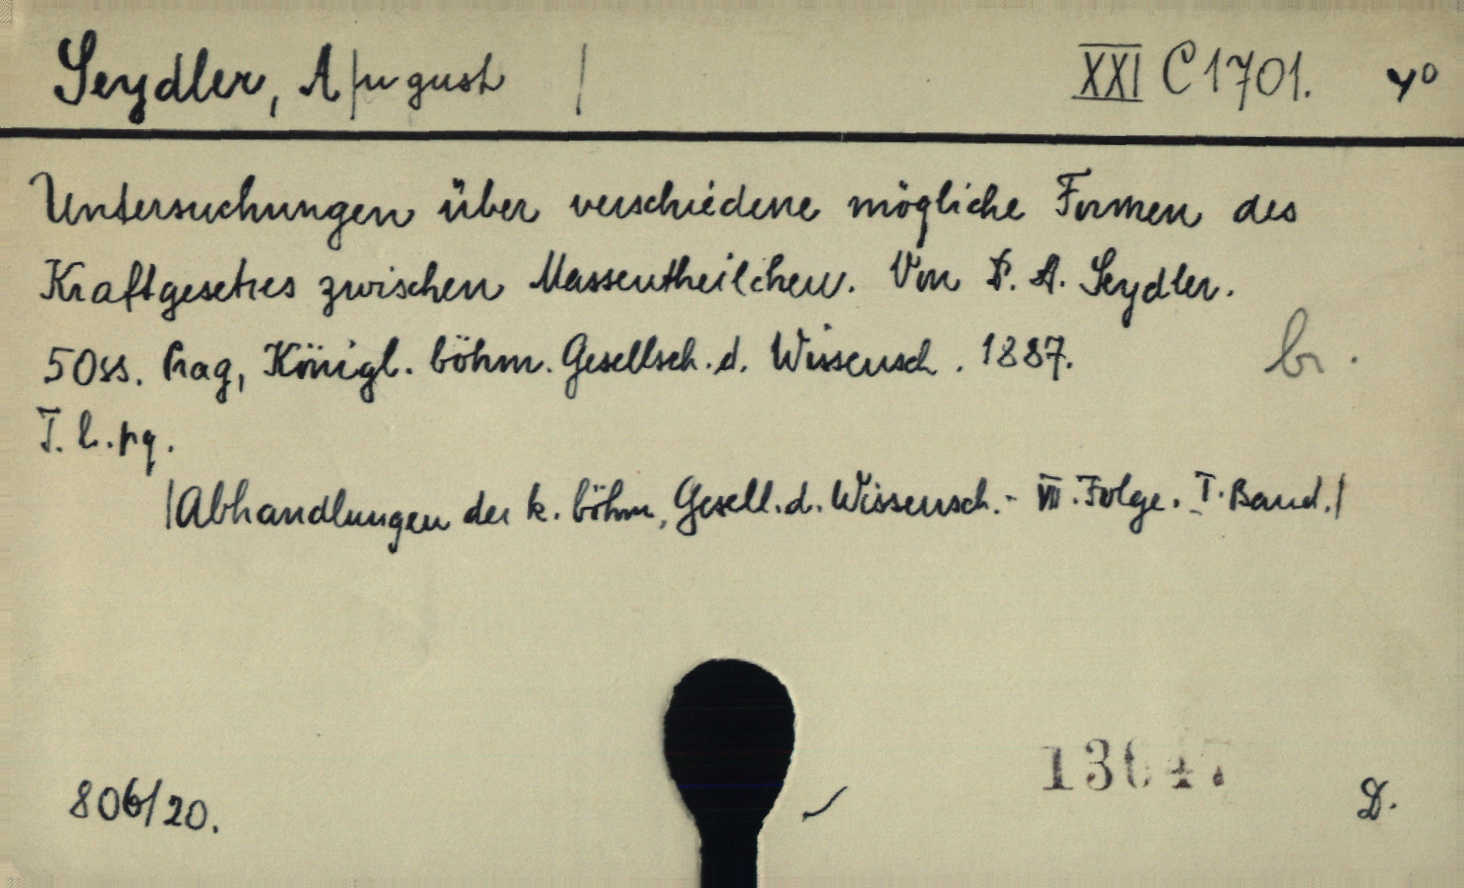 Seydler, A/ugust / XXI C 1701. 4°
Untersuchungen über verschiedene mögliche Formen des
Kraftgesetzes zwischen Massentheilchen. Von D. A. Seydler.
50ss. Prag, Königl. böhm. Gesellsch. d. Wissensch. 1887.
br.
T. l. pg.
/Abhandlungen der k. böhm. Gesell. d. Wissensch. - VII. Folge. I. Band./
806/20. D.